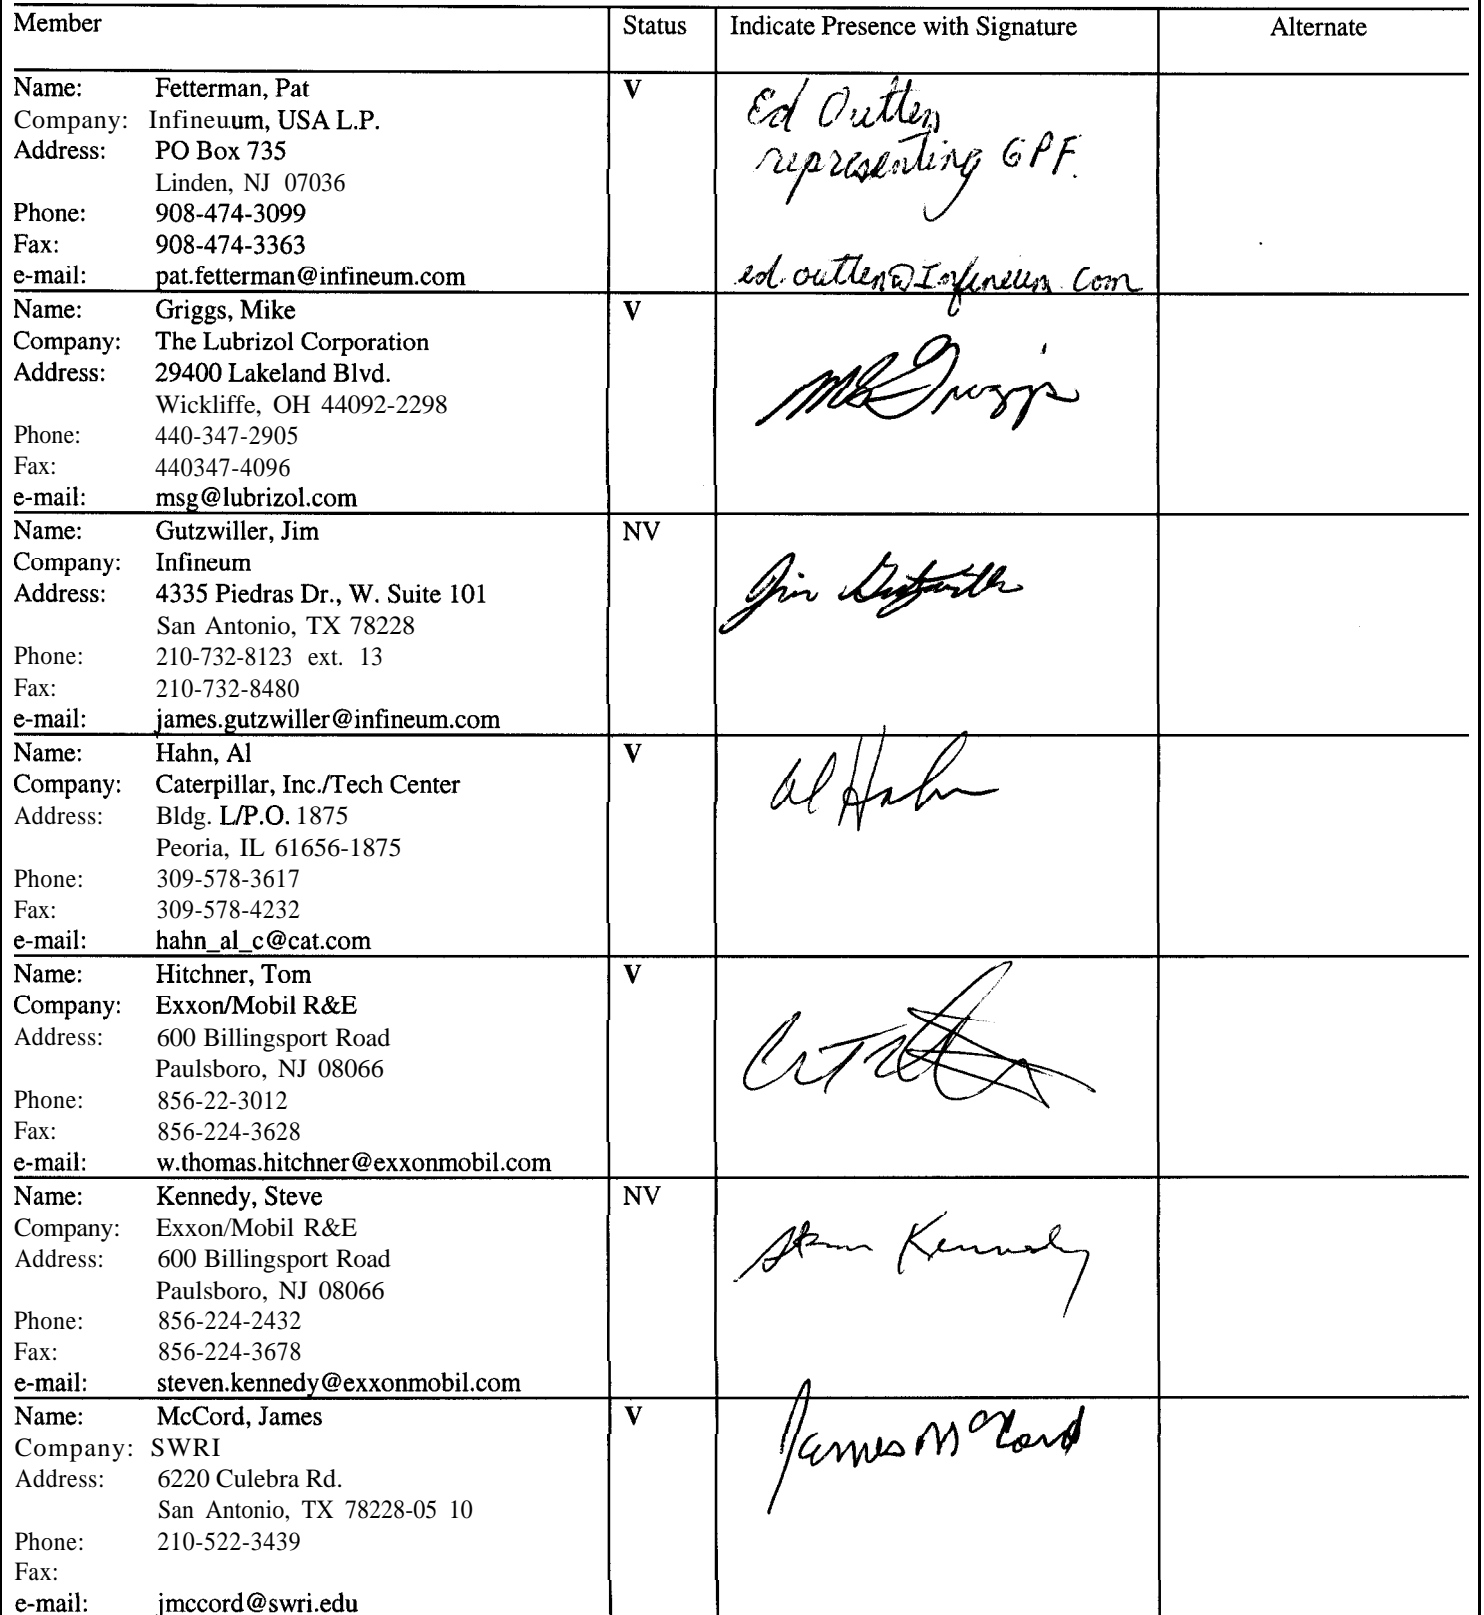 Member Status Indicate Presence with Signature Alternate
Name: Fetterman, Pat V
Company: Infineuum, USA L.P.
Address: PO Box 735
Linden, NJ 07036
Phone: 908-474-3099
Fax: 908-474-3363
e-mail: pat.fetterman@infineum.com
Ed Outten
representing GPF.
ed.outten@Infineum.com
Name: Griggs, Mike V
Company: The Lubrizol Corporation
Address: 29400 Lakeland Blvd.
Wickliffe, OH 44092-2298
Phone: 440-347-2905
Fax: 440347-4096
e-mail: msg@lubrizol.com
MS Griggs
Name: Gutzwiller, Jim NV
Company: Infineum
Address: 4335 Piedras Dr., W. Suite 101
San Antonio, TX 78228
Phone: 210-732-8123 ext. 13
Fax: 210-732-8480
e-mail: james.gutzwiller@infineum.com
Jim Gutzwiller
Name: Hahn, Al V
Company: Caterpillar, Inc./Tech Center
Address: Bldg. L/P.O. 1875
Peoria, IL 61656-1875
Phone: 309-578-3617
Fax: 309-578-4232
e-mail: hahn_al_c@cat.com
Al Hahn
Name: Hitchner, Tom V
Company: Exxon/Mobil R&E
Address: 600 Billingsport Road
Paulsboro, NJ 08066
Phone: 856-22-3012
Fax: 856-224-3628
e-mail: w.thomas.hitchner@exxonmobil.com
Name: Kennedy, Steve NV
Company: Exxon/Mobil R&E
Address: 600 Billingsport Road
Paulsboro, NJ 08066
Phone: 856-224-2432
Fax: 856-224-3678
e-mail: steven.kennedy@exxonmobil.com
Steve Kennedy
Name: McCord, James V
Company: SWRI
Address: 6220 Culebra Rd.
San Antonio, TX 78228-05 10
Phone: 210-522-3439
Fax:
e-mail: jmccord@swri.edu
James McCord